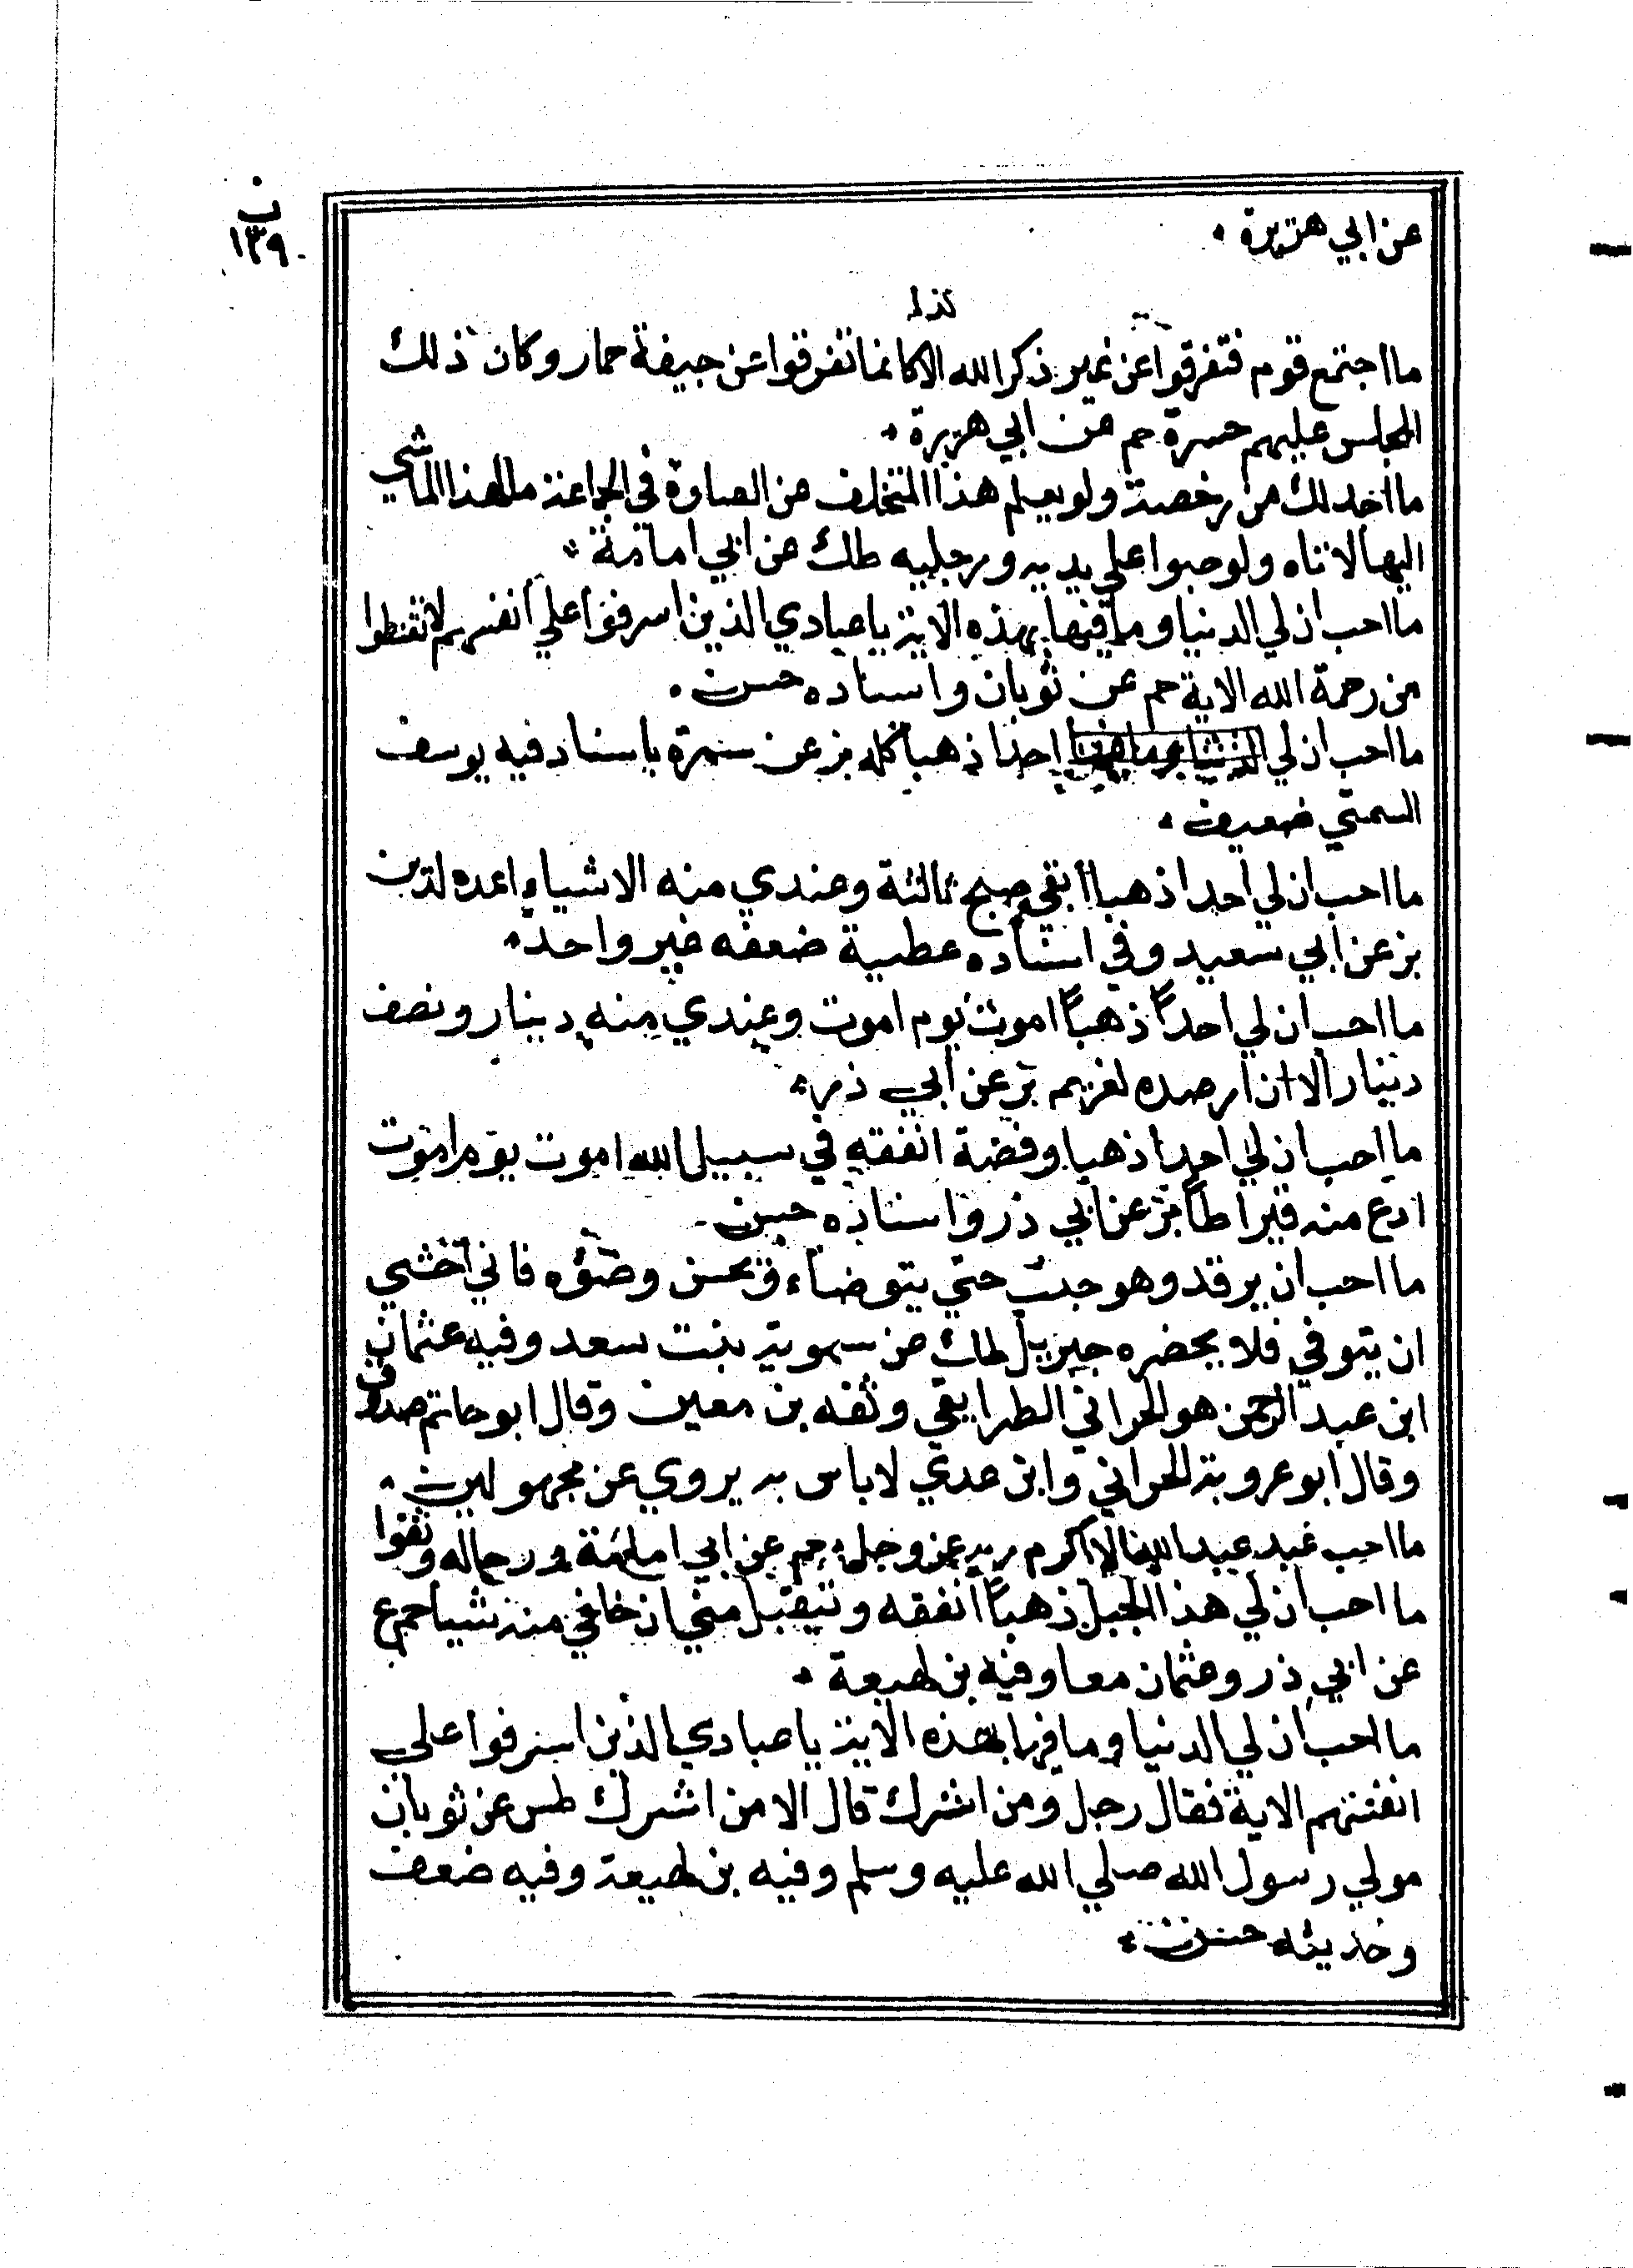 ب
١٣٩
عن ابي هريرة ٠
كذا
ما اجتمع قوم فتفرقوا عن غير ذكر الله الا كانما تفرقوا عن جيفة حمار وكان ذلك
المجلس عليهم حسرة حم عن ابي هريرة ٠
ما اجد لك من رخصة ولو يعلم هذا المتخلف عن الصلوة في الجماعة ما لهذا الماشي
اليها لاتاه ولو حبوا على يديه ورجليه طك عن ابي امامة ٠
ما احب ان لي الدنيا وما فيها بهذه الاية يا عبادي الذين اسرفوا علي انفسهم لا تقنطوا
من رحمة الله الاية حم عن ثوبان واسناده حسن ٠
ما احب ان لي احدا ذهبا كله بز عن سمرة باسناد فيه يوسف
السمتي ضعيف ٠
ما احب ان لي احدا ذهبا ابقي صبح ثالثة وعندي منه الا شياء اعده لدين
بز عن ابي سعيد وفي اسناده عطية ضعفه غير واحد ٠
ما احب ان لي احداً ذهباً اموت يوم اموت وعندي منه دينار ونصف
دينار الا ان ارصده لغريم بز عن ابي ذر ٠
ما احب ان لي احدا ذهبا وفضة انفقه في سبيل الله اموت يوم اموت
ادع منه قيراطاً بز عن ابي ذر واسناده حسن ٠
ما احب ان يرقد وهو جنب حتي يتوضاء ويحسن وضؤه فاني اخشي
ان يتوفي فلا يحضره جبريل طك عن ميمونة بنت سعد وفيه عثمان
ابن عبد الرحمن هو الحراني الطرايفي وثقه بن معين وقال ابو حاتم صدوق
وقال ابو عروبة الحراني وابن عدي لا باس به يروي عن مجهولين ٠
ما احب عبد عبدا لله الا اكرم ربه عز وجل حم عن ابي امامة ورجاله وثقوا
ما احب ان لي هذا الجبل ذهباً انفقه ويتقبل مني اذر خلفي منه شيا حم ع
عن ابي ذر وعثمان معا وفيه بن لهيعة ٠
ما احب ان لي الدنيا وما فيها بهذه الاية يا عبادي الذين اسرفوا علي
انفسهم الاية فقال رجل ومن اشرك قال الا من اشرك طس عن ثوبان
مولي رسول الله صلي الله عليه وسلم وفيه بن لهيعة وفيه ضعف
وحديثه حسن ٠